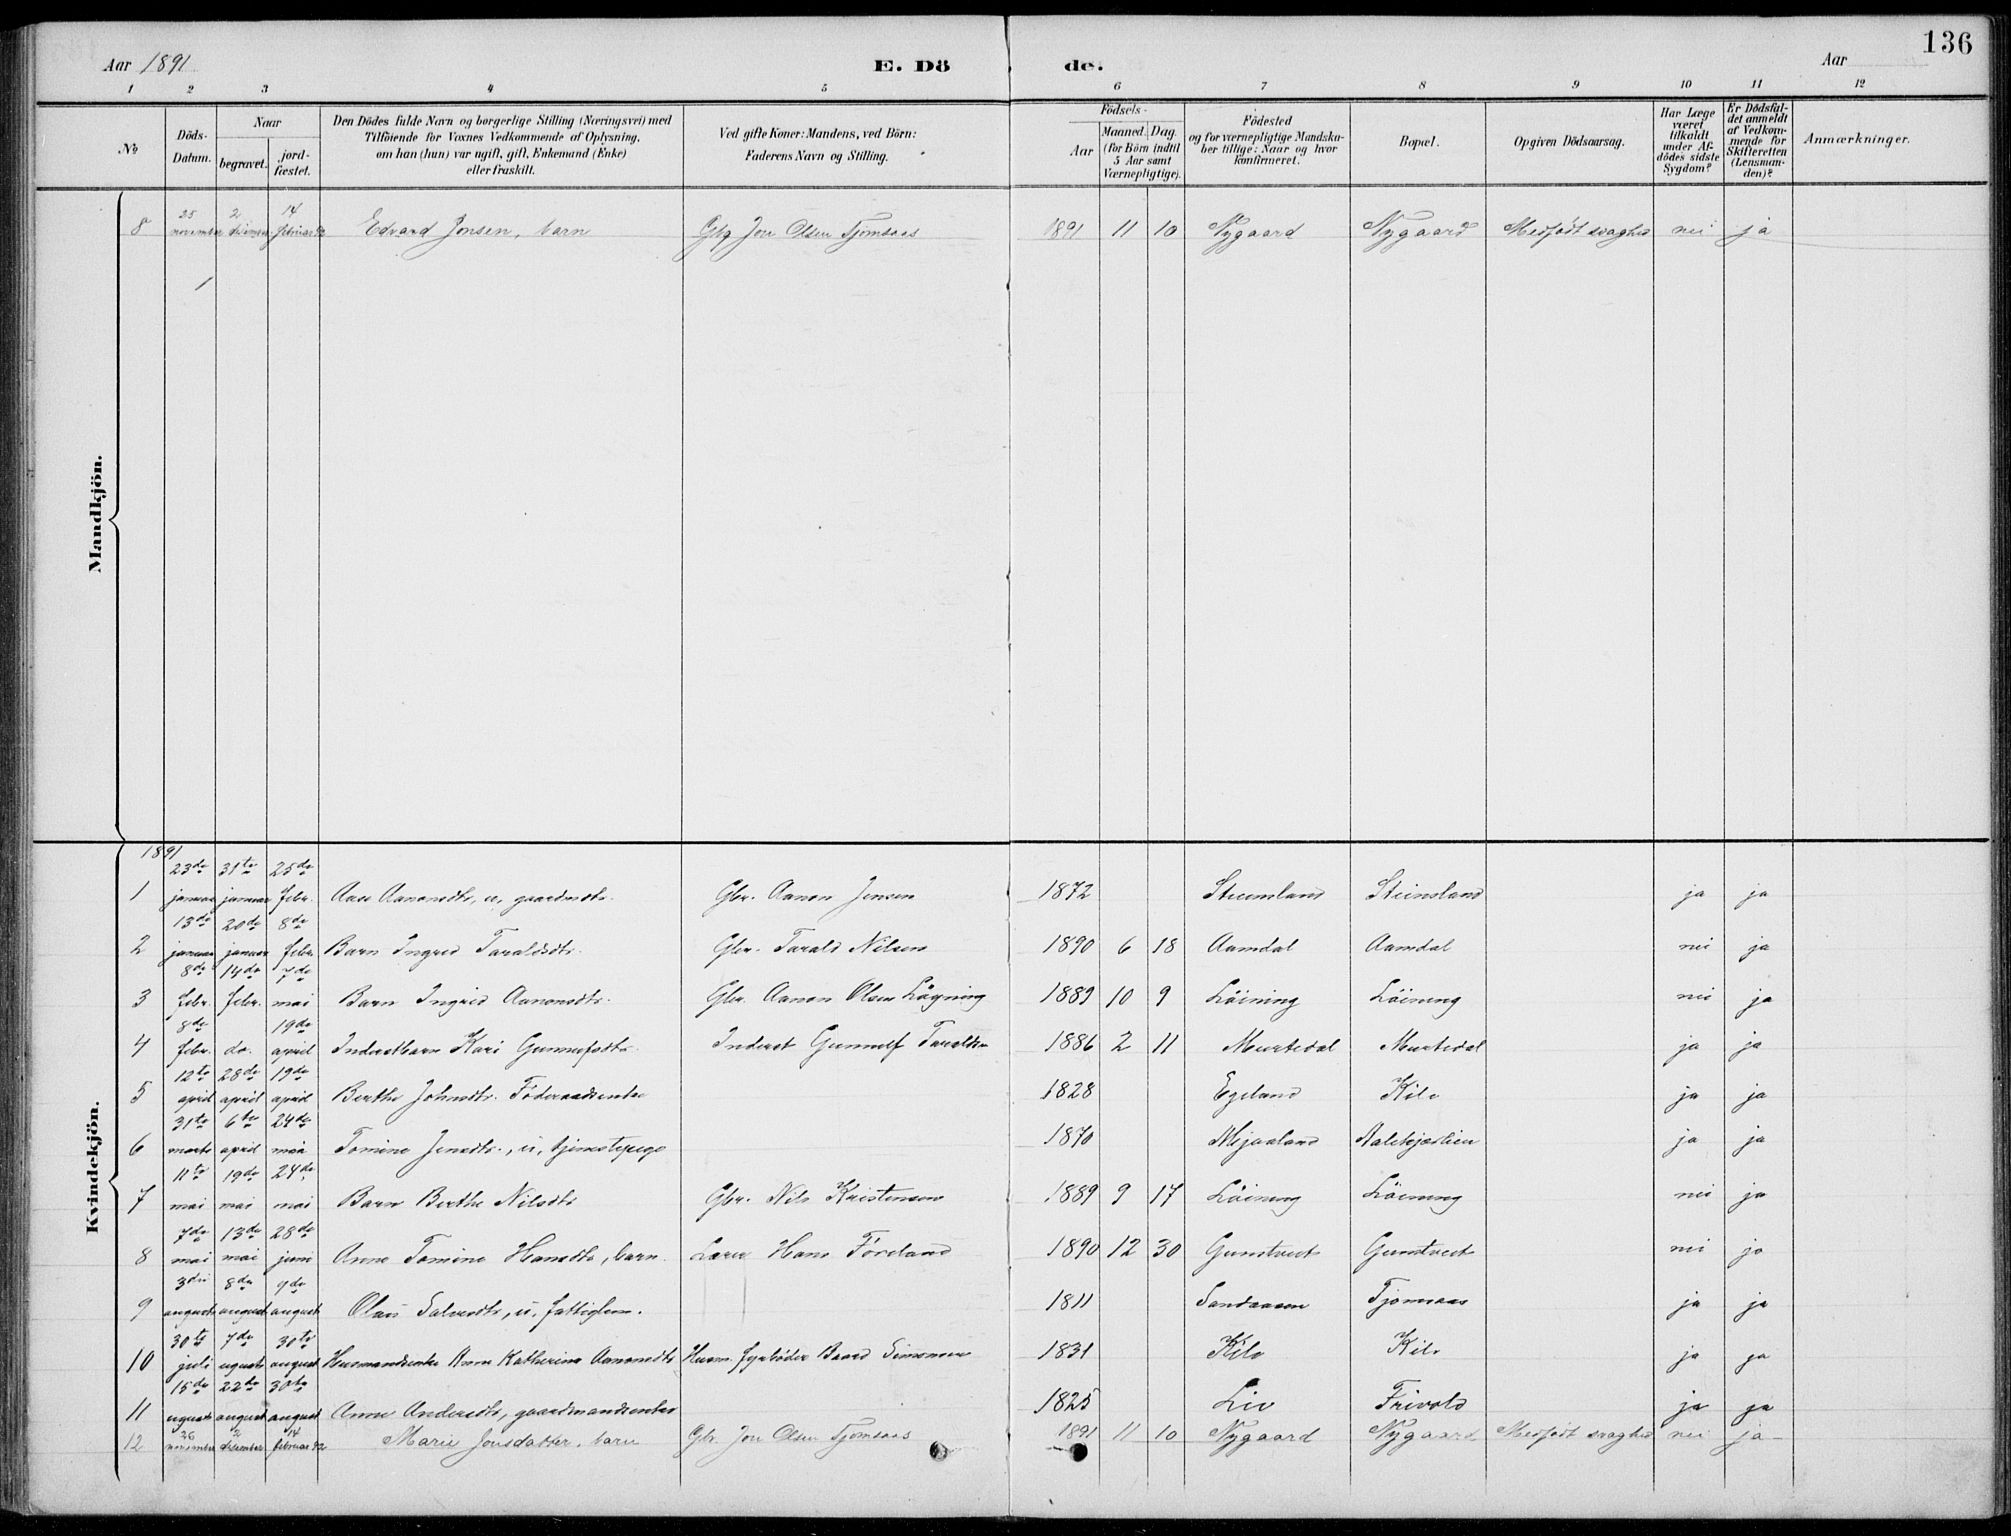 136
Aar 1891 E. Dö de. Aar
1 2 3 4 5 6 7 8 9 10 11 12
No
Döds-Datum.
Naar
begravet.
jord-fæstet.
Den Dödes fulde Navn og borgerlige Stilling (Næringsvei) med
Tilföiende for Voxnes Vedkommende af Oplysning,
om han (hun) var ugift, gift, Enkemand (Enke)
eller fraskilt.
Ved gifte Koner: Mandens, ved Börn:
Faderens Navn og Stilling.
Födsels-
Aar
Maaned. Dag.
(for Börn indtil
5 Aar samt
Værnepligtige).
Födested
og for værnepligtige Mandska-
ber tillige: Naar og hvor
konfirmeret.
Bopæl.
Opgiven Dödsaarsag.
Har Læge
været
tilkaldt
under Af-
dödes sidste
Sygdom?
Er Dödsfal-
det anmeldt
af Vedkom-
mende for
Skifteretten
(Lensman-
den)?
Anmærkninger.
Mandkjön.
25 2 14
8 november desember februar 92 Edvard Jonsen, barn Gbr Jon Olsen Tjomsaas 1891 11 10 Nygaard Nygaard Medfødt svaghed nei ja
Kvindekjön.
1891
23de 31te 25de
1 januar januar febr. Aase Aanonsdtr, u, gaardmdtr. Gbr. Aanon Jensen 1872 Steensland Steinsland ja ja
13de 20de 8de
2 januar januar febr. Barn Ingred Taraldsdtr. Gbr. Tarald Nilsen 1890 6 18 Aamdal Aamdal nei ja
8de 14de 7de
3 febr. febr. mai Barn Ingrid Aanonsdtr. Gbr. Aanon Olsen Løgning 1889 10 9 Löining Löining nei ja
8de 19de
4 febr. do. april Inderstbarn Kari Gunnufsdtr. Inderst Gunnulf Taraldsen 1886 2 11 Murtedal Murtedal ja ja
12te 28de 19de
5 april april april Berthe Johnsdtr. Føderaadsenke 1828 Egeland Kile ja ja
31te 6te 24de
6 marts april mai Tomine Jensdtr., u, tjenestepige 1870 Mjaaland ja ja
11te 19de 24de
7 mai mai mai Barn Berthe Nilsdtr Gbr. Nils Kristensen 1889 9 17 Löining Löining nei ja
7de 13de 28de
8 mai mai juni Anne Tomine Hansdtr, barn. Lærer Hans Føreland 1890 12 30 Gunstveit Gunstveit nei ja
3die 8de 9de
9 august august august Olaus Salvesdtr, u, fattiglem. 1811 Sandaasen Tjomsaas ja ja
30te 7de 30te
10 juli august august Husmandsenke Anne Katherine Aanonsdtr Husm. fyrbøder Baard Simonsen 1831 Kile Kile ja ja
15de 22de 30te
11 august august august Anne Andersdtr, gaardmandsenke 1825 Liv Frivold ja ja
26 2 14
12 november desember februar 92 Marie Jonsdatter, barn Gbr. Jon Olsen Tjomsaas 1891 11 10 Nygaard Nygaard Medfødt svaghed nei ja